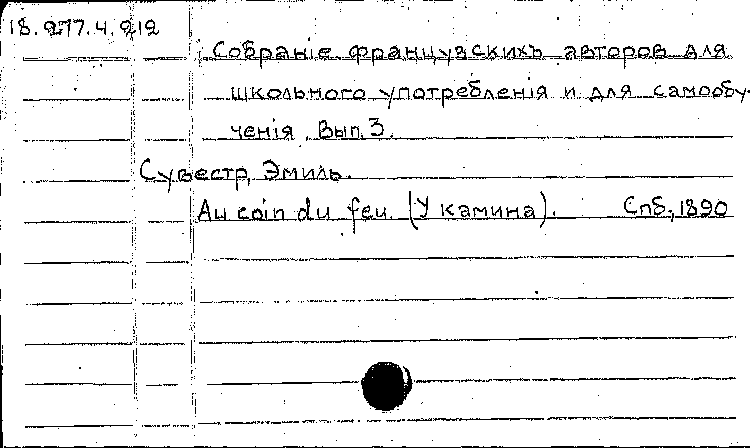 18.277.4.212
Собранiе французскихъ авторов для
школьного употребленiя и для самообу-
ченiя. Вып. 3.
Сувестр, Эмиль.
Au coin du feu. (У камина). Спб., 1890